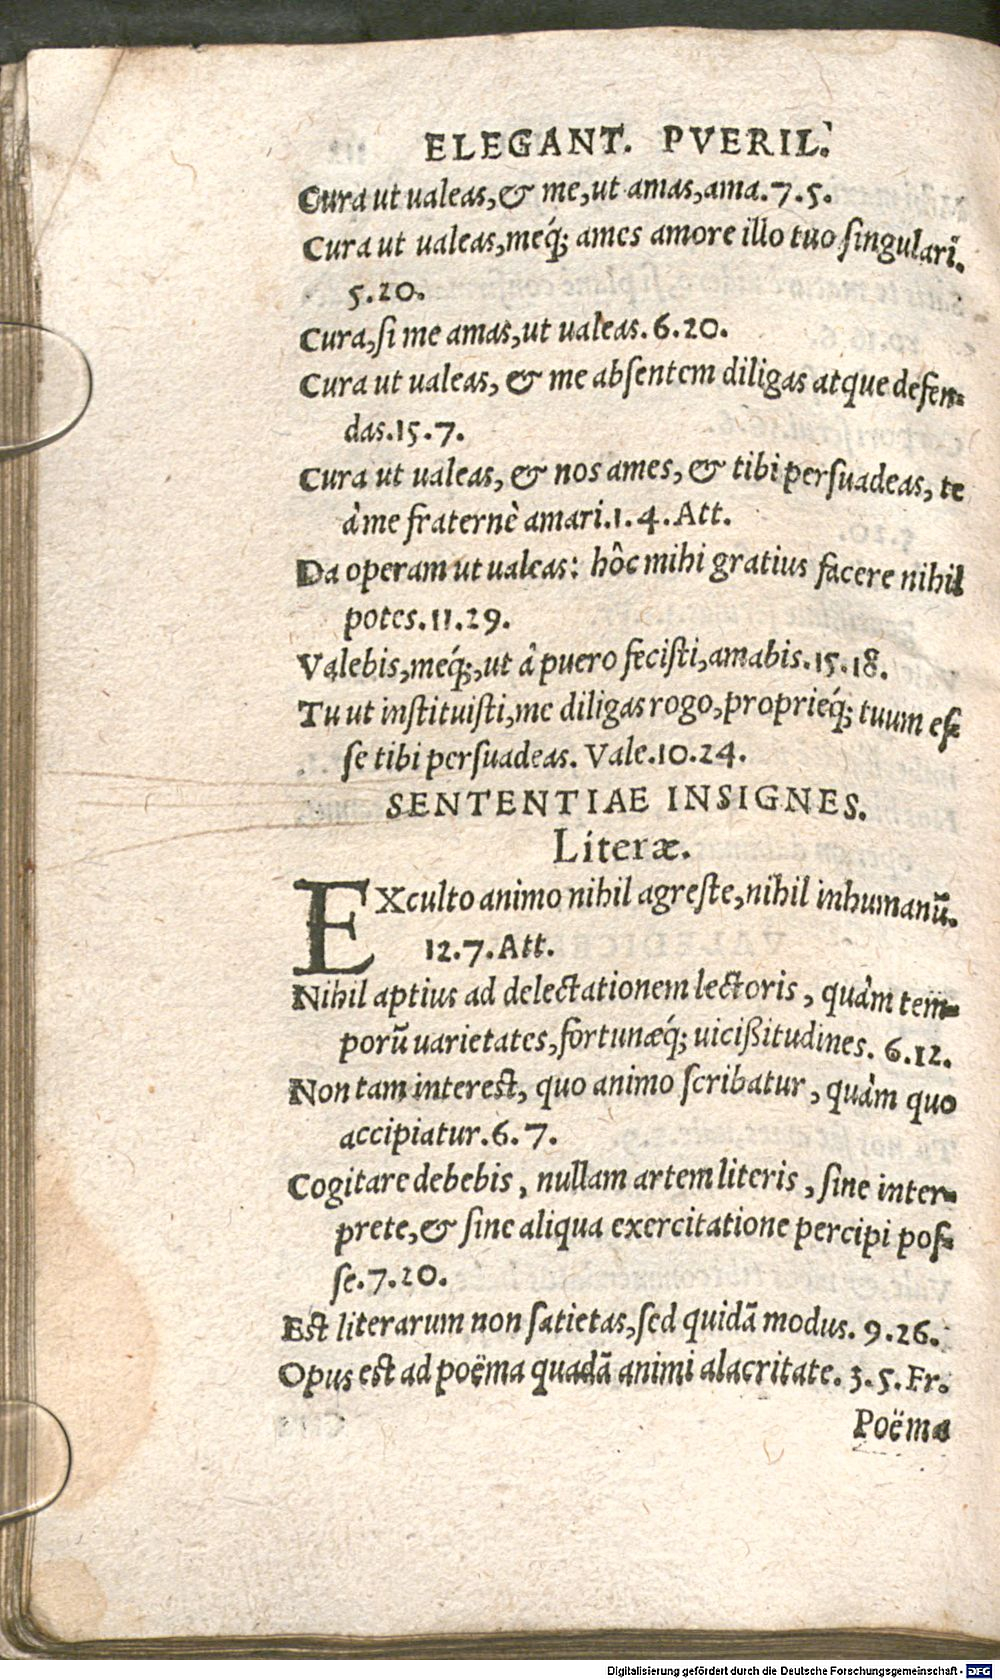 ELEGANT. PVERIL.
Cura ut ualeas,& me,ut amas,ama.7.5.
Cura ut ualeas,meq́; ames amore illo tuo ſingulari.
5.20.
Cura,ſi me amas,ut ualeas.6.20.
Cura ut ualeas, & me abſentem diligas atque defen-
das.15.7.
Cura ut ualeas, & nos ames, & tibi perſuadeas, te
à me fraternè amari.1.4.Att.
Da operam ut ualeas: hôc mihi gratius facere nihil
potes.11.29.
Valebis,meq́;,ut à puero feciſti,amabis.15.18.
Tu ut inſtituiſti,me diligas rogo,proprieq́; tuum eſ-
ſe tibi perſuadeas. Vale.10.24.
SENTENTIAE INSIGNES.
Literæ.
EXculto animo nihil agreſte,nihil inhumanū.
12.7.Att.
Nihil aptius ad delectationem lectoris, quàm tem-
porū uarietates,fortunæq́; uicißitudines. 6.12.
Non tam intereſt, quo animo ſcribatur, quàm quo
accipiatur.6.7.
Cogitare debebis, nullam artem literis, ſine inter-
prete,& ſine aliqua exercitatione percipi poſ-
ſe.7.20.
Eſt literarum non ſatietas,ſed quidā modus. 9.26.
Opus eſt ad poëma quadā animi alacritate. 3.5.Fr.
Poëma
Digitalisierung gefördert durch die Deutsche Forschungsgemeinschaft - DFG